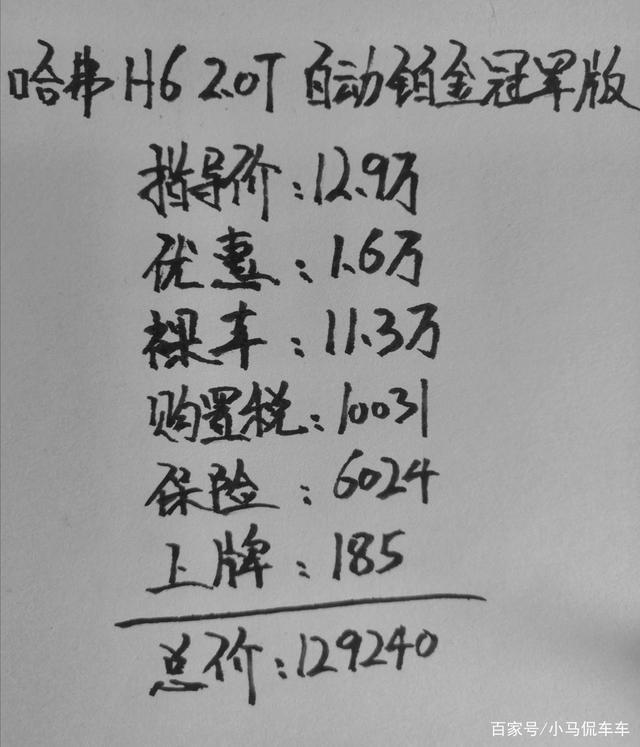 哈弗H6 2.0T 自动铂金冠军版
指导价:12.9万
优惠:1.6万
裸车:11.3万
购置税:10031
保险:6024
上牌:185
总价:129240
百家号/小马侃车车